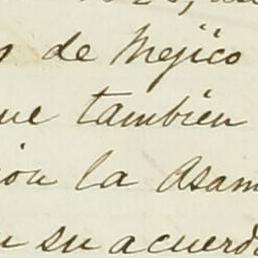 de Mejico
que también
ión la Asam
su acuerdo